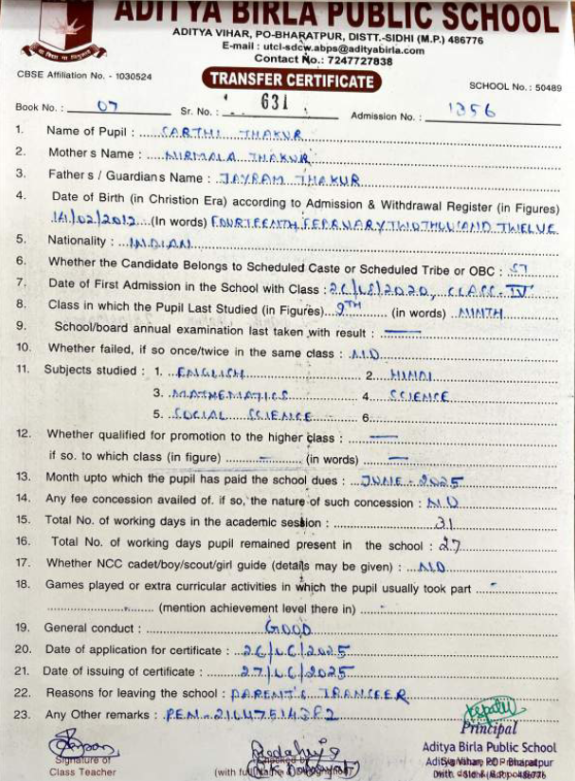 ADITYA BIRLA PUBLIC SCHOOL
ADITYA VIHAR, PO-BHARATPUR, DISTT.-SIDHI (M.P.) 486776
E-mail : utcl-sdcw.abps@adityabirla.com
Contact No.: 7247727838
CBSE Affiliation No. - 1030524
TRANSFER CERTIFICATE
SCHOOL No. : 50489
Book No. : 07 Sr. No. : 631 Admission No. : 1356
1. Name of Pupil : SARTHI THAKUR
2. Mother s Name : NIRMALA THAKUR
3. Father s / Guardians Name : JAYRAM THAKUR
4. Date of Birth (in Christion Era) according to Admission & Withdrawal Register (in Figures)
14/02/2012 (In words) FOURTEENTH FEBRUARY TWO THOUSAND TWELVE
5. Nationality : INDIAN
6. Whether the Candidate Belongs to Scheduled Caste or Scheduled Tribe or OBC : ST
7. Date of First Admission in the School with Class : 2020, CLASS-IV
8. Class in which the Pupil Last Studied (in Figures) 9TH (in words) NINTH
9. School/board annual examination last taken with result : —
10. Whether failed, if so once/twice in the same class : N.O
11. Subjects studied : 1. ENGLISH 2. HINDI
3. MATHEMATICS 4. SCIENCE
5. SOCIAL SCIENCE 6.
12. Whether qualified for promotion to the higher class : —
if so. to which class (in figure) — (in words) —
13. Month upto which the pupil has paid the school dues : JUNE-2025
14. Any fee concession availed of. if so, the nature of such concession : N.O
15. Total No. of working days in the academic session : 31
16. Total No. of working days pupil remained present in the school : 27
17. Whether NCC cadet/boy/scout/girl guide (details may be given) : N.O
18. Games played or extra curricular activities in which the pupil usually took part -
(mention achievement level there in) -
19. General conduct : GOOD
20. Date of application for certificate : 26/06/2025
21. Date of issuing of certificate : 27/06/2025
22. Reasons for leaving the school : PARENT'S TRANSFER
23. Any Other remarks : PEN-
Principal
Signature of
Class Teacher
(with full
Aditya Birla Public School
Aditya Vihar, PO-Bharatpur